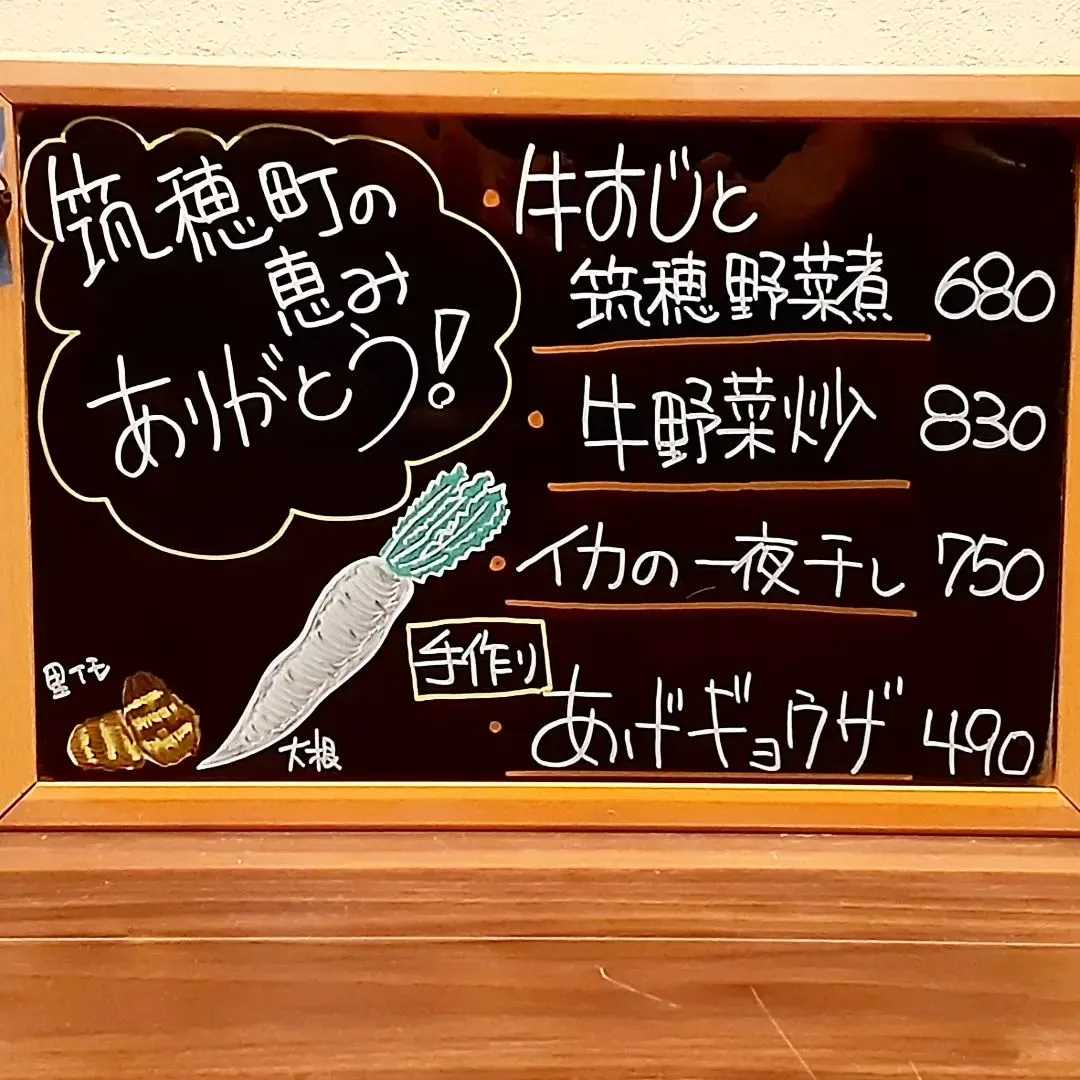 筑穂町の
恵み
ありがとう!
里イモ
大根
・牛すじと
筑穂野菜煮 680
・牛野菜炒 830
・イカの一夜干し 750
手作り
・あげギョウザ 490